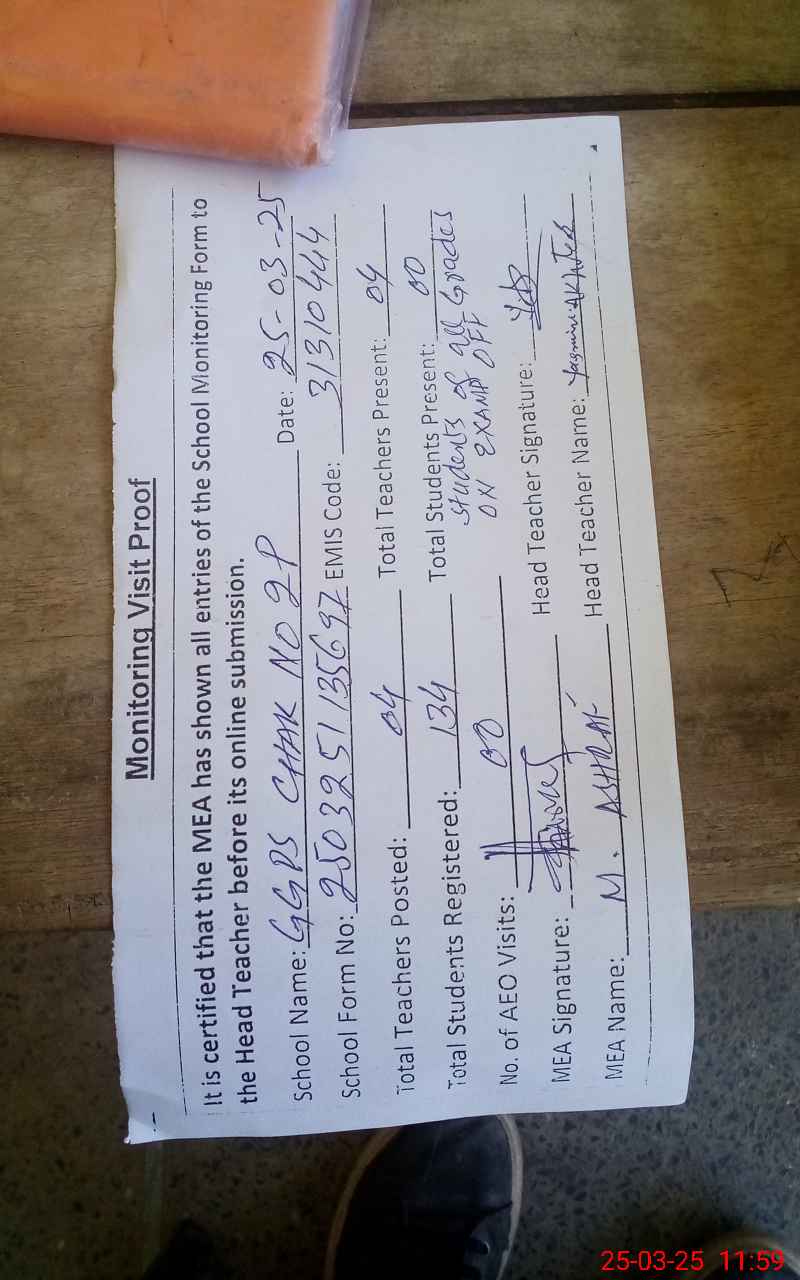 Monitoring Visit Proof
It is certified that the MEA has shown all entries of the School Monitoring Form to
the Head Teacher before its online submission.
School Name: GGPS CHAK NO 2P Date: 25-03-25
School Form No: 250325113569 7 EMIS Code: 31310444
Total Teachers Posted: 04 Total Teachers Present: 04
Total Students Registered: 134 Total Students Present: 00
students of all Grades
No. of AEO Visits: 00 ON EXAMP OFF
MEA Signature: Head Teacher Signature:
MEA Name: M. ASHRAF Head Teacher Name: Yasmin AKHTER
25-03-25 11:59